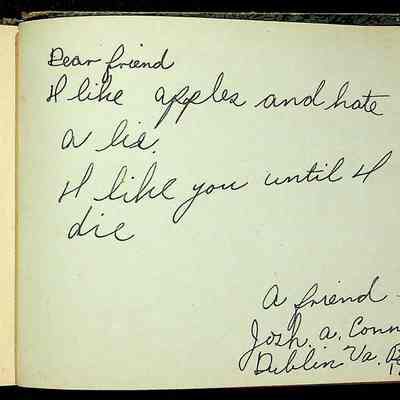 Dear friend
I like apples and hate
a lie.
I like you until I
die
A friend
Josh. A. Conn
Dublin Va.